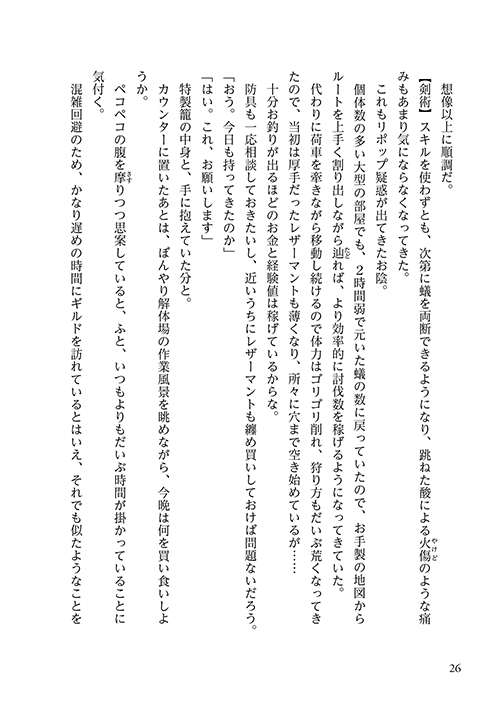 想像以上に順調だ。
【剣術】スキルを使わずとも、次第に蟻を両断できるようになり、跳ねた酸による火傷のような痛
みもあまり気にならなくなってきた。
これもリポップ疑惑が出てきたお陰。
個体数の多い大型の部屋でも、2時間弱で元いた蟻の数に戻っていたので、お手製の地図から
ルートを上手く割り出しながら辿れば、より効率的に討伐数を稼げるようになってきていた。
代わりに荷車を牽きながら移動し続けるので体力はゴリゴリ削れ、狩り方もだいぶ荒くなってき
たので、当初は厚手だったレザーマントも薄くなり、所々に穴まで空き始めているが……
十分お釣りが出るほどのお金と経験値は稼げているからな。
防具も一応相談しておきたいし、近いうちにレザーマントも纏め買いしておけば問題ないだろう。
「おう。今日も持ってきたのか」
「はい。これ、お願いします」
特製籠の中身と、手に抱えていた分と。
カウンターに置いたあとは、ぼんやり解体場の作業風景を眺めながら、今晩は何を買い食いしよ
うか。
ペコペコの腹を摩りつつ思案していると、ふと、いつもよりもだいぶ時間が掛かっていることに
気付く。
混雑回避のため、かなり遅めの時間にギルドを訪れているとはいえ、それでも似たようなことを
26